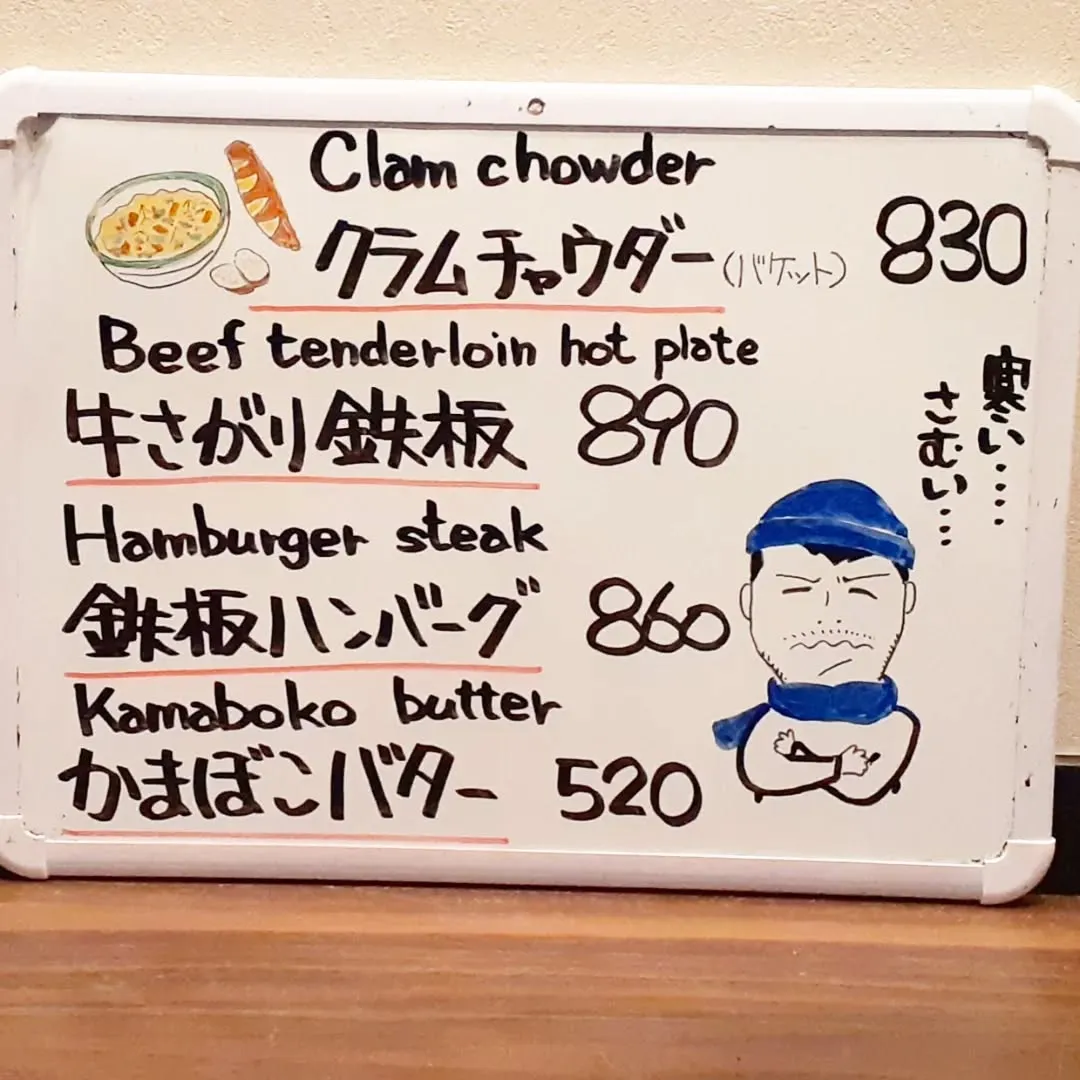 Clam chowder
クラムチャウダー(バケット) 830
Beef tenderloin hot plate
牛さがり鉄板 890
Hamburger steak
鉄板ハンバーグ 860
Kamaboko butter
かまぼこバター 520
寒い....
さむい...